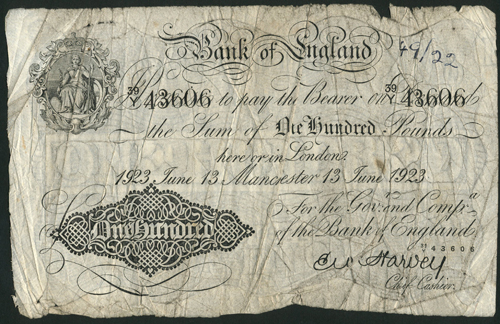 Bank of England
49/22
39/V 43606 to pay the Bearer on 39/V 43606
the Sum of One Hundred Pounds
here or in London.
1923 June 13 Manchester 13 June 1923
For the Gov.r and Comp.a
of the Bank of England
43606
One Hundred
Harvey
Chief Cashier.